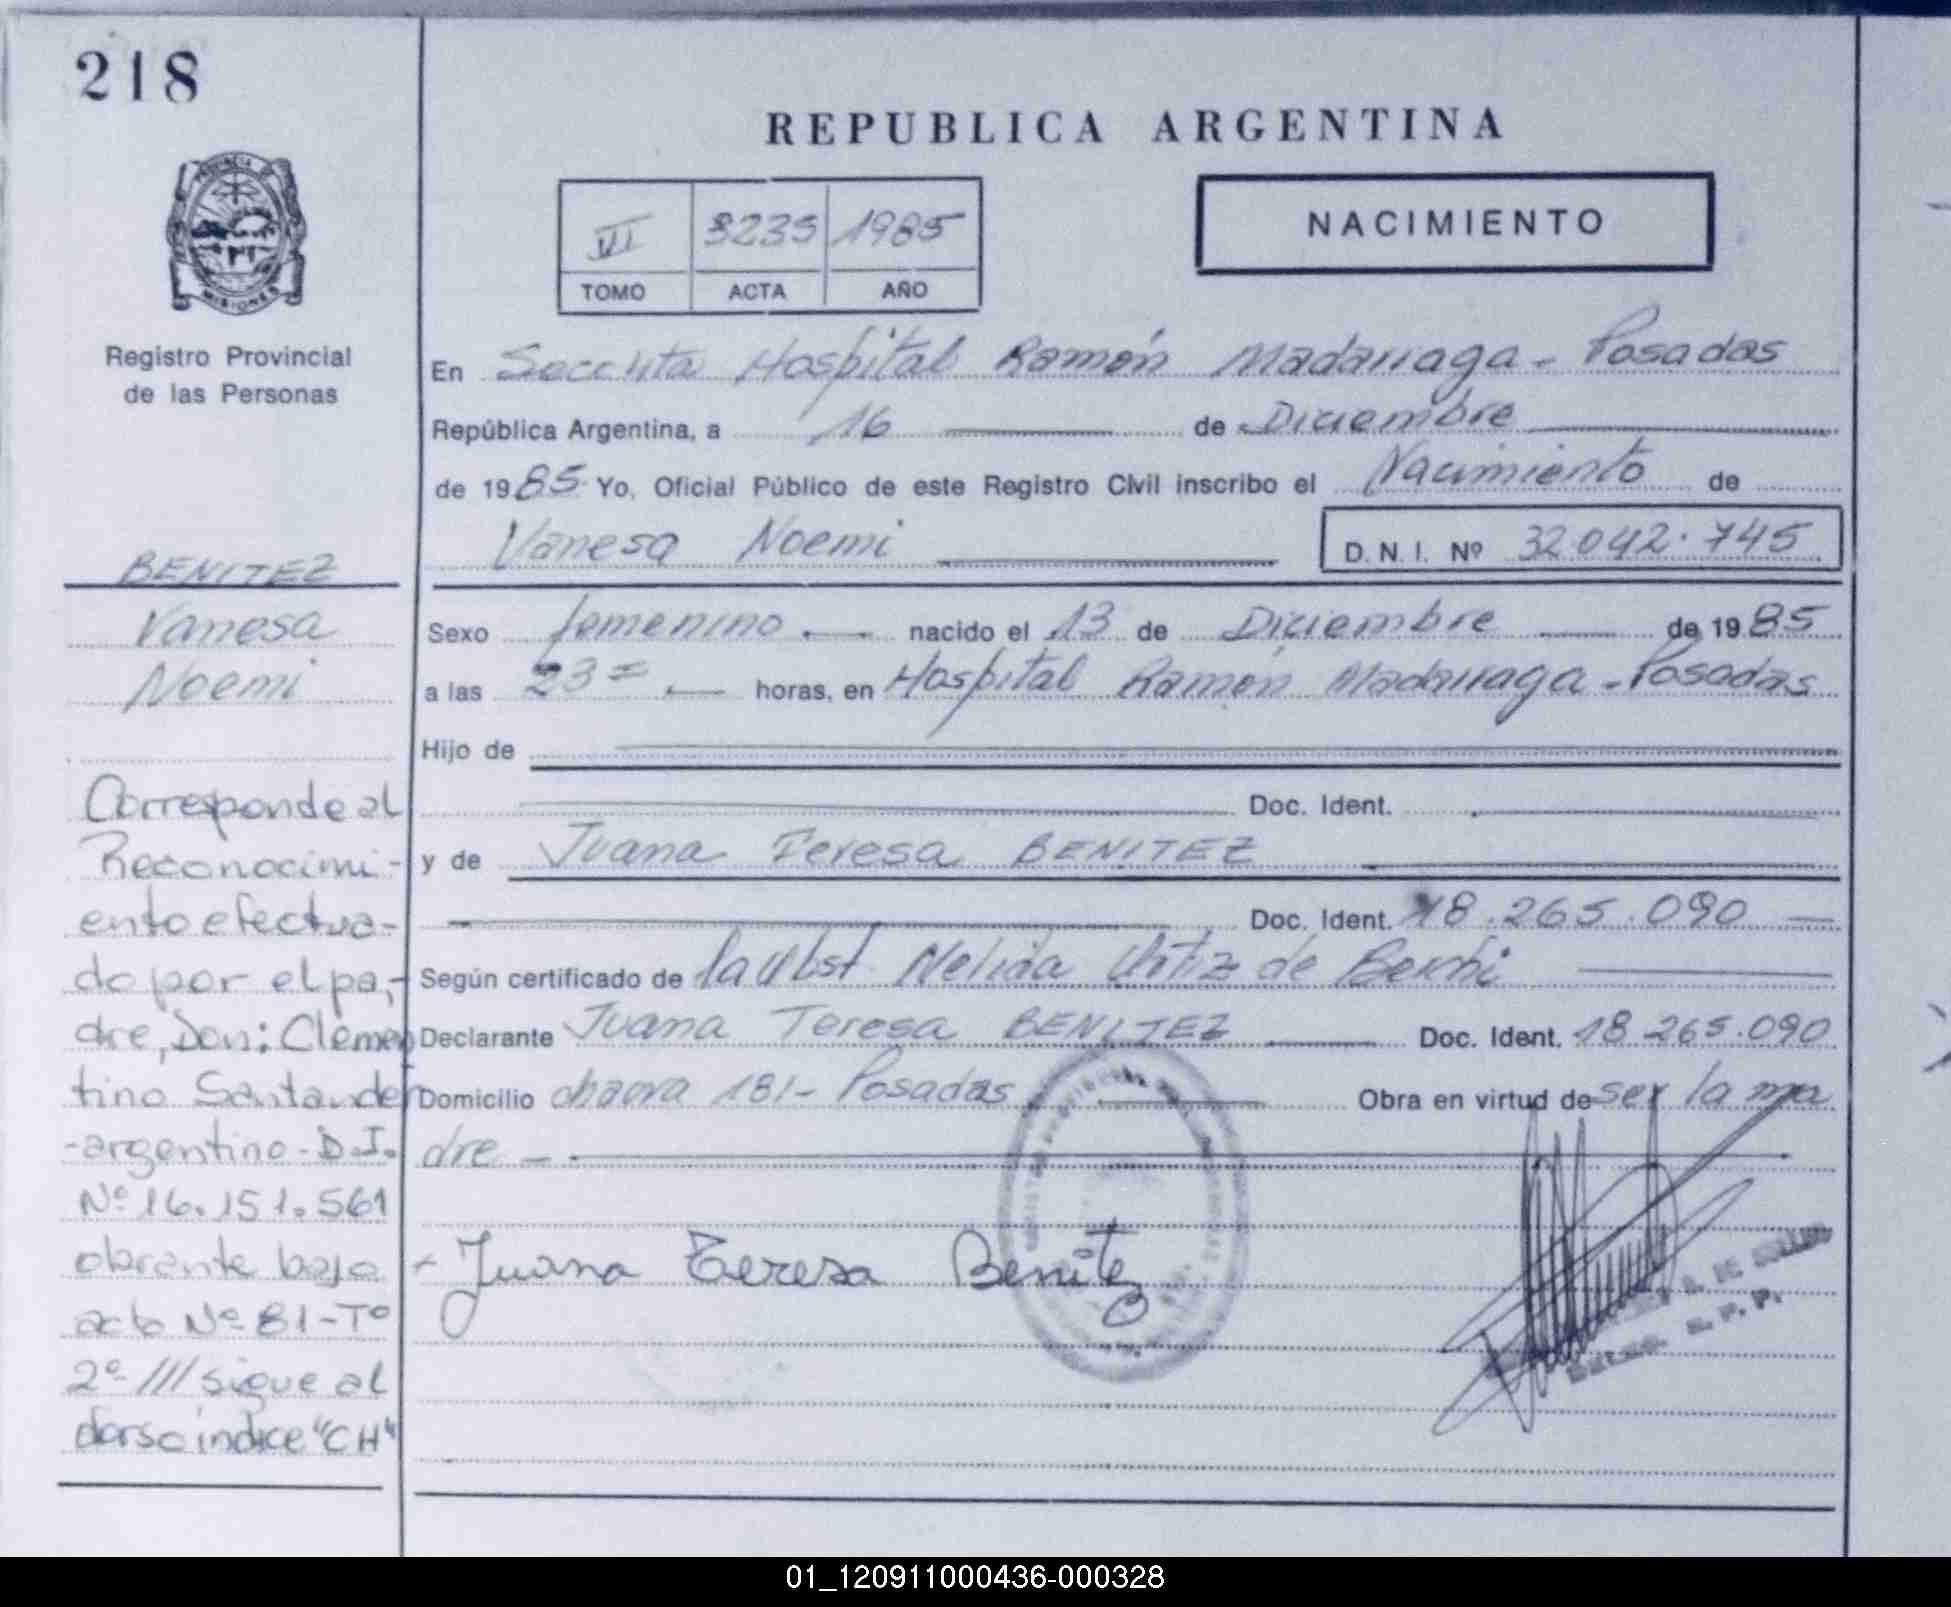 218
REPUBLICA ARGENTINA
VI 3235 1985
TOMO ACTA AÑO
NACIMIENTO
PROVINCIA DE
MISIONES
Registro Provincial
de las Personas
En Hospital Ramón Madariaga - Posadas
República Argentina, a 16 de Diciembre
de 1985 Yo, Oficial Público de este Registro Civil inscribo el Nacimiento de
Vanesa Noemi D. N. I. Nº 32.042.745
BENITEZ
Vanesa
Noemi
Sexo femenino nacido el 13 de Diciembre de 1985
a las 23 horas, en Hospital Ramón Madariaga - Posadas
Hijo de
Doc. Ident.
y de Juana Teresa BENITEZ
Doc. Ident. 18.265.090
Según certificado de la Obst. Nelida de
Declarante Juana Teresa BENITEZ Doc. Ident. 18.265.090
Domicilio chacra 181 - Posadas Obra en virtud de ser la ma
dre
Juana Teresa Benitez
Corresponde al
Reconocimi-
ento efectua-
do por el pa-
dre, Don: Clemen
tino Santander
- argentino - D.I.
Nº 16.151.561
obrante bajo
acta Nº 81 - Tº
2º /// sigue al
dorso índice "CH"
01_120911000436-000328